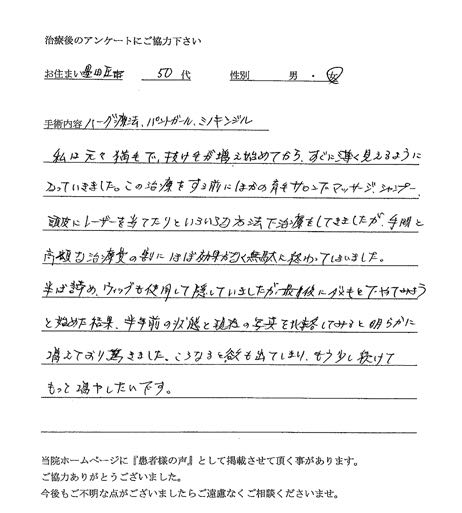 治療後のアンケートにご協力下さい
お住まい 墨田区 50代 性別 男・女
手術内容 ハーグ療法、パントガール、ミノキシジル
私は元々猫毛で、抜け毛が増え始めてから、すぐに薄く見えるように
なっていきました。この治療をする前にほかの育毛サロンでマッサージ、シャンプー、
頭皮にレーザーを当てたりといろいろな方法で治療をしてきましたが、手間と
高額な治療費の割にほぼ効果がなく無駄に終わってしまいました。
半ば諦め、ウィッグも使用して隠していましたが最後に
と始めた結果、半年前の状態と現在の写真を比較してみると明らかに
増えており驚きました。こうなると欲も出てしまい、もう少し続けて
もっと増やしたいです。
当院ホームページに『患者様の声』として掲載させて頂く事があります。
ご協力ありがとうございました。
今後もご不明な点がございましたらご遠慮なくご相談くださいませ。